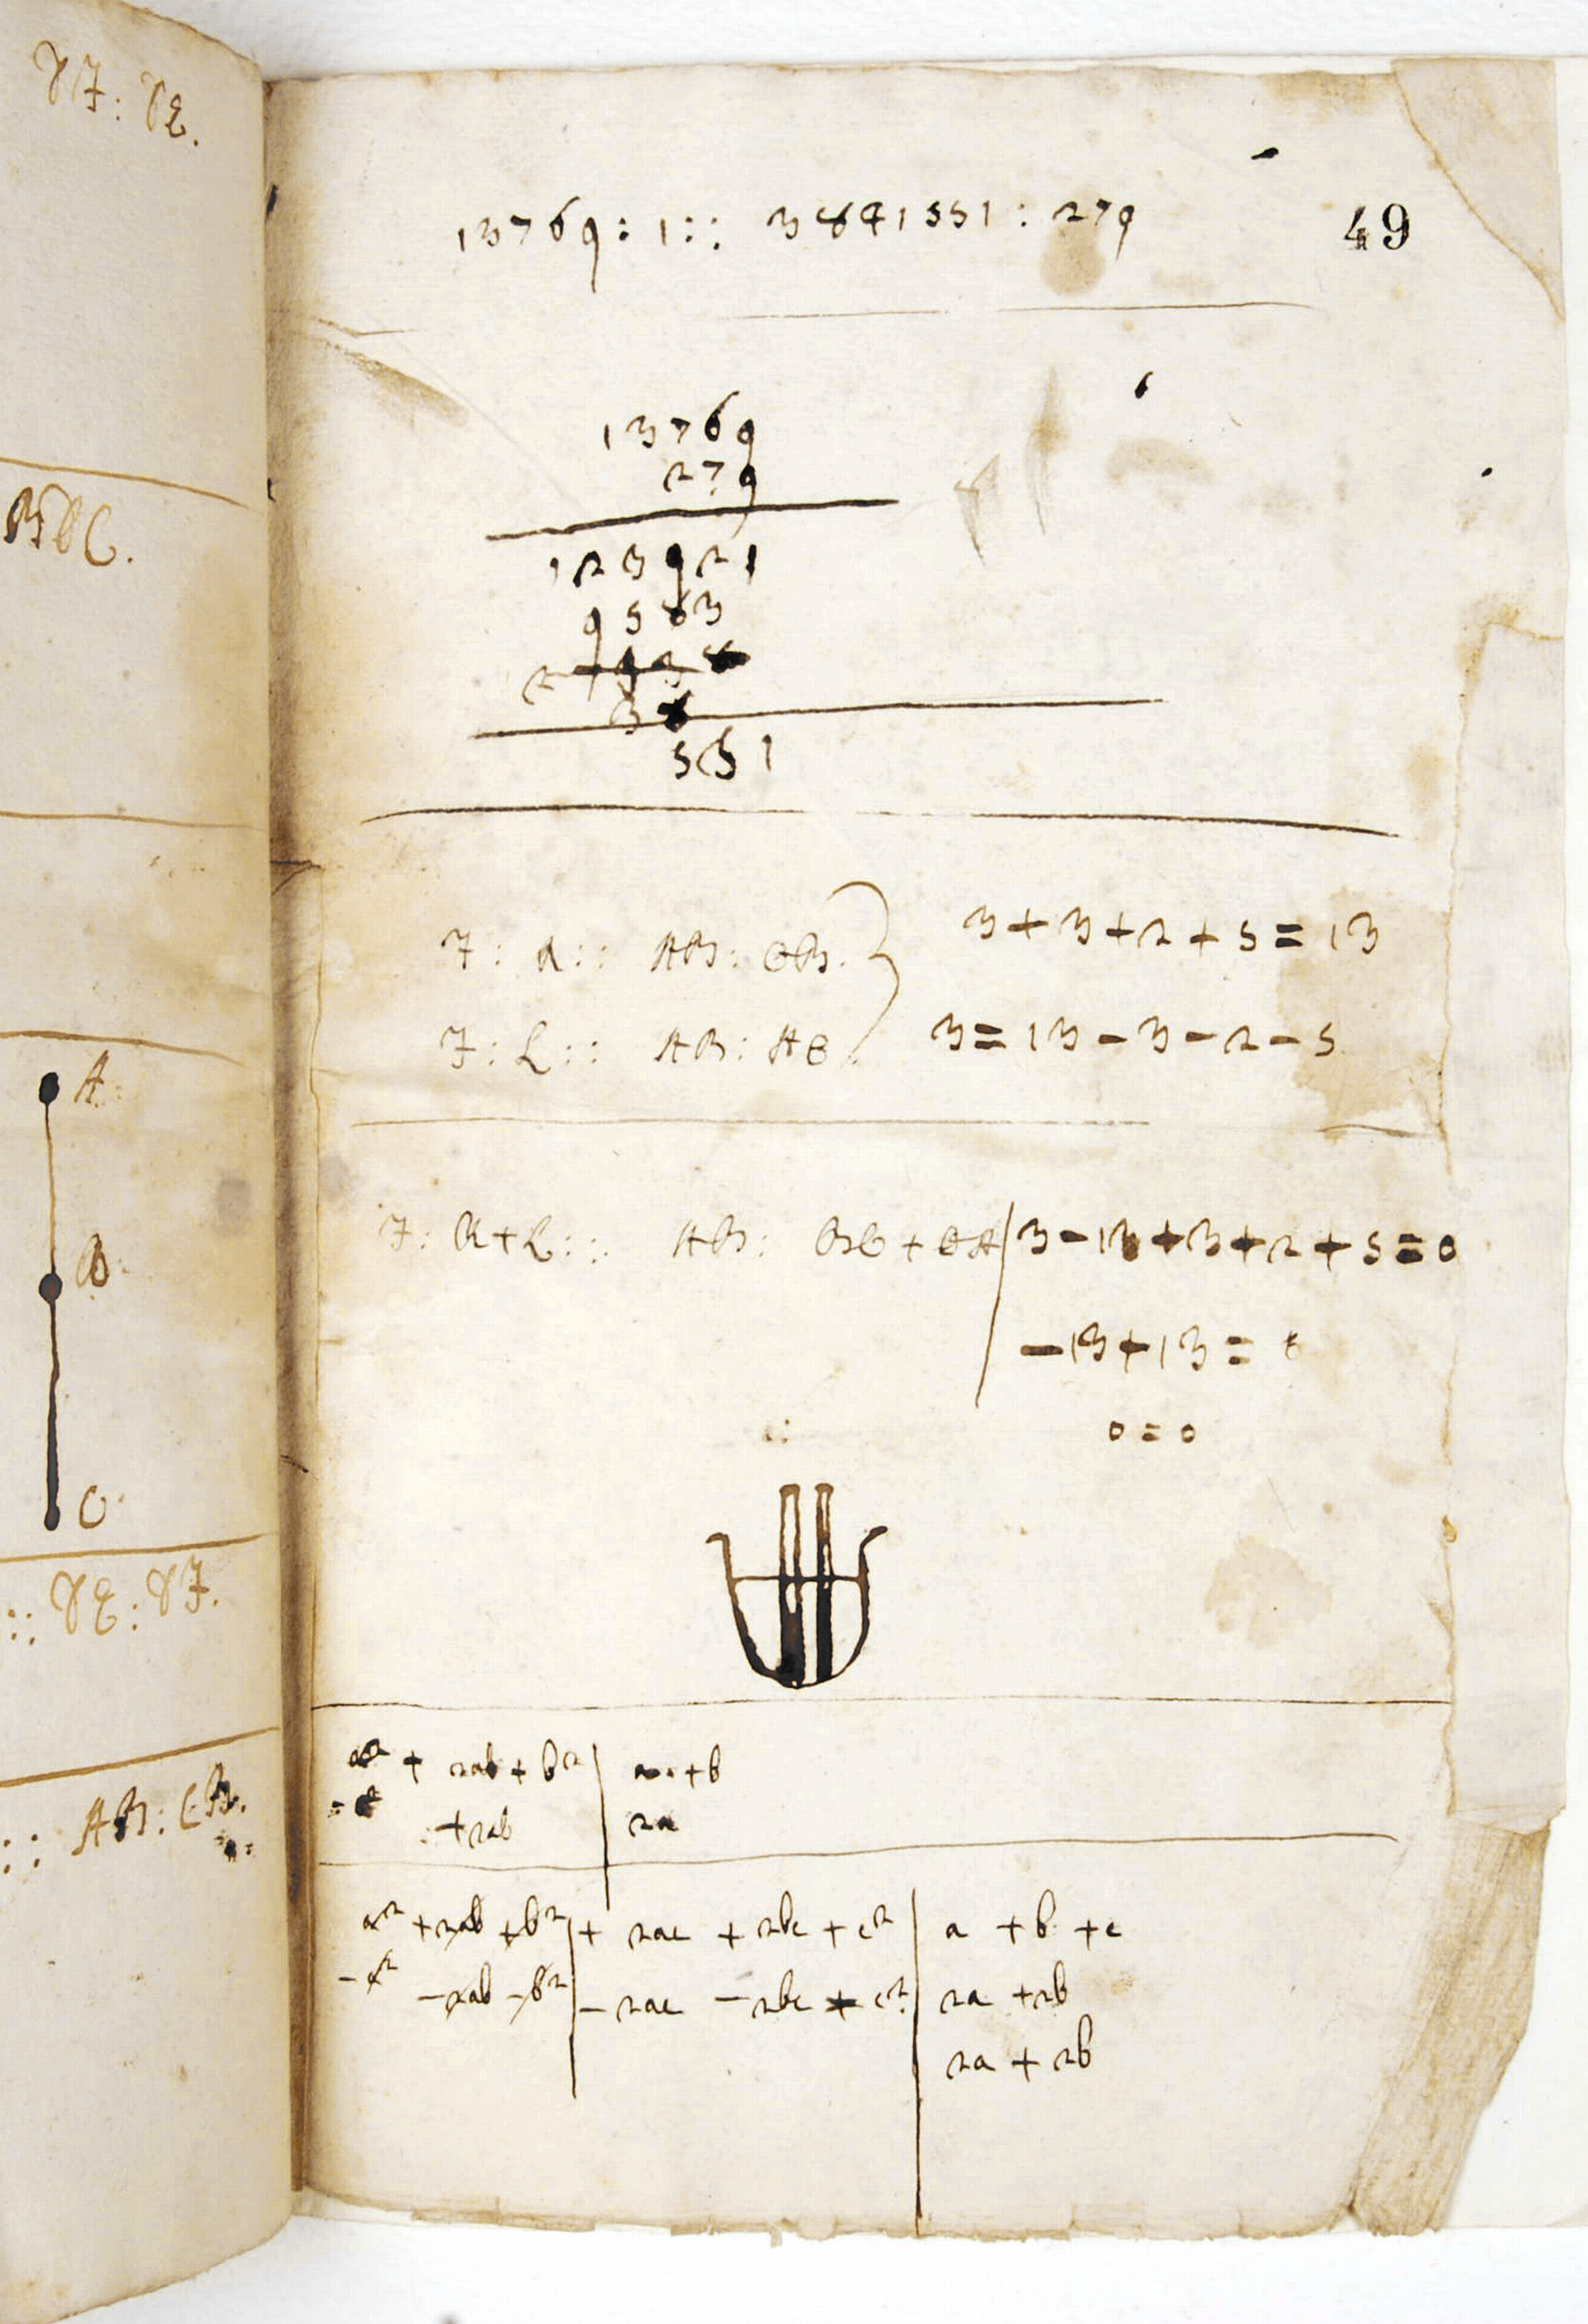 VF: VE.
BDC.
A.
B.
C.
:: VE: VF.
:: AB: CB.
49
13769: 1:: 3841551: 279
13769
279
123921
9563
2
551
F: R:: AB: CB.
F: L:: AB: AC.
3+3+2+5=13
3=13-3-2-5
F: R+L:: AB: BC+CA
3-13+3+2+5=0
-13+13=0
0=0
a² + 2ab + b² a + b
+2ab 2a
a² + 2ab + b² + 2ac + 2bc + c² a + b + c
-a² -2ab -b² - 2ac - 2bc + c² 2a + 2b
2a + 2b